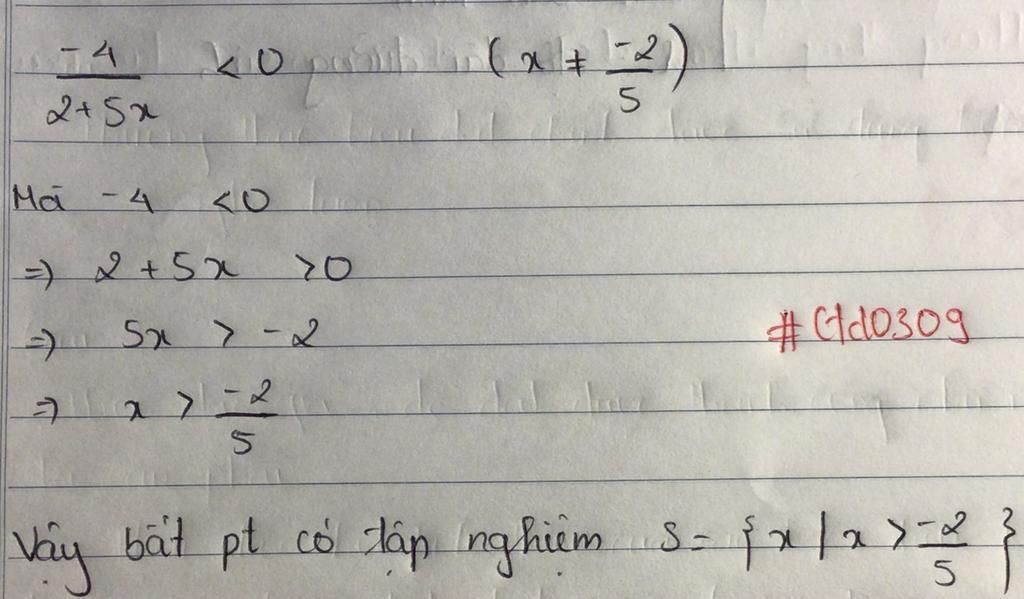 -4/(2+5x) < 0 (x ≠ -2/5)
Mà -4 < 0
=> 2 + 5x > 0
=> 5x > -2
#Ctd0309
=> x > -2/5
Vậy bất pt có tập nghiệm S = {x | x > -2/5}